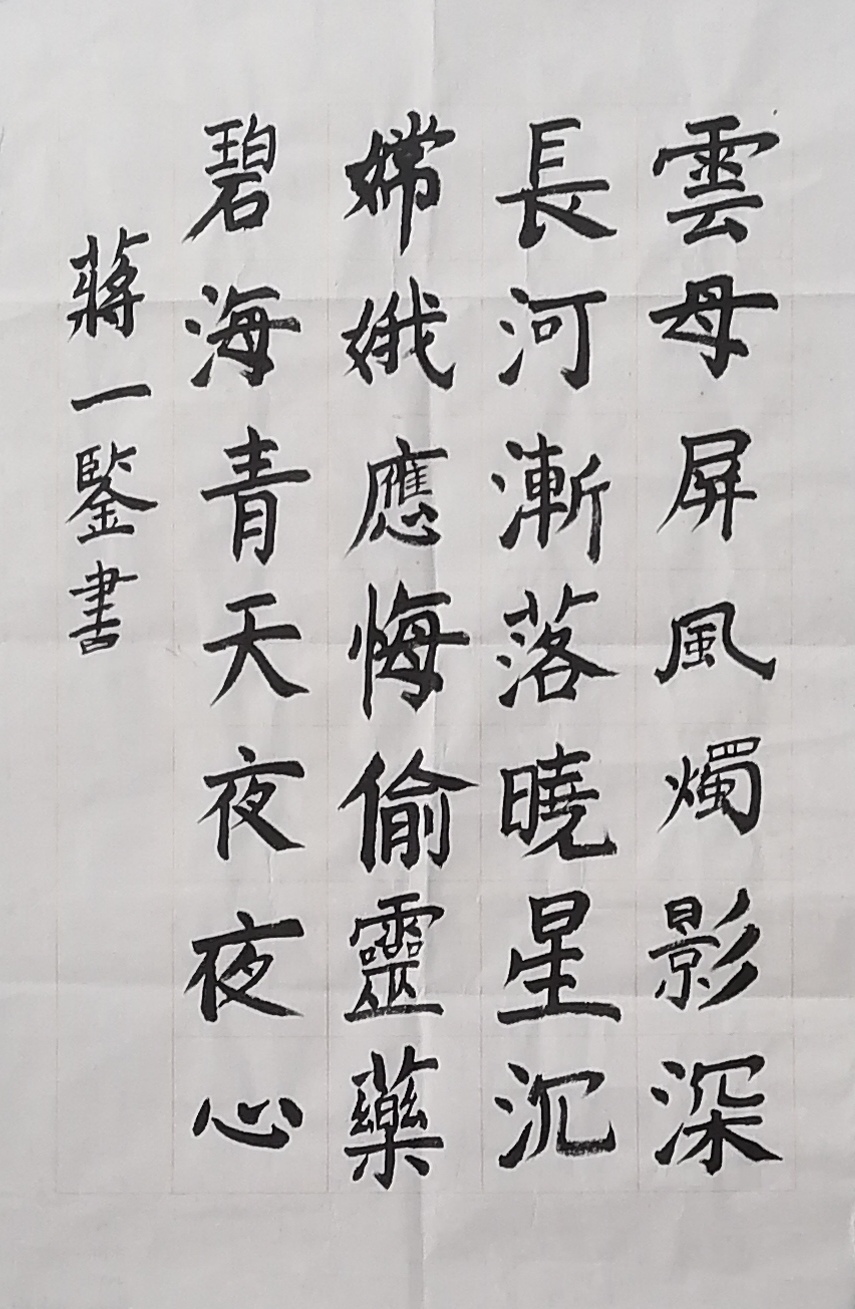 雲母屏風燭影深
長河漸落曉星沉
嫦娥應悔偷靈藥
碧海青天夜夜心
蔣一鑒書